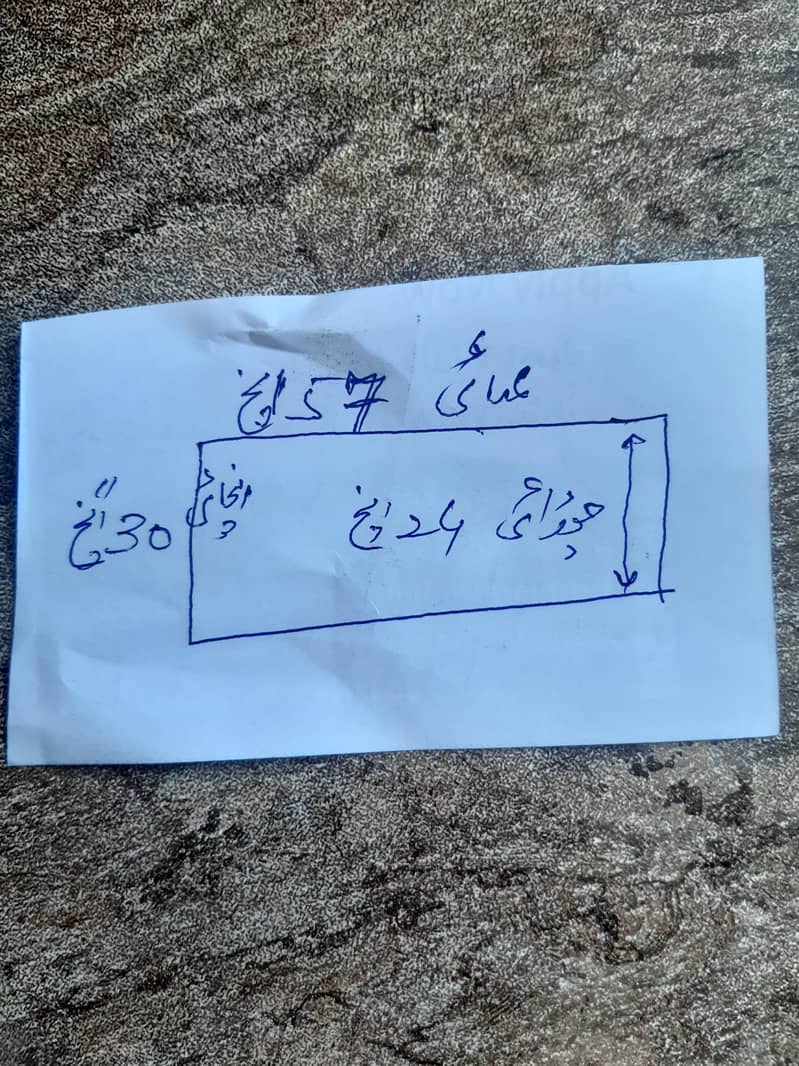 لمبائی 57 انچ
اونچائی 30 انچ
چوڑائی 24 انچ